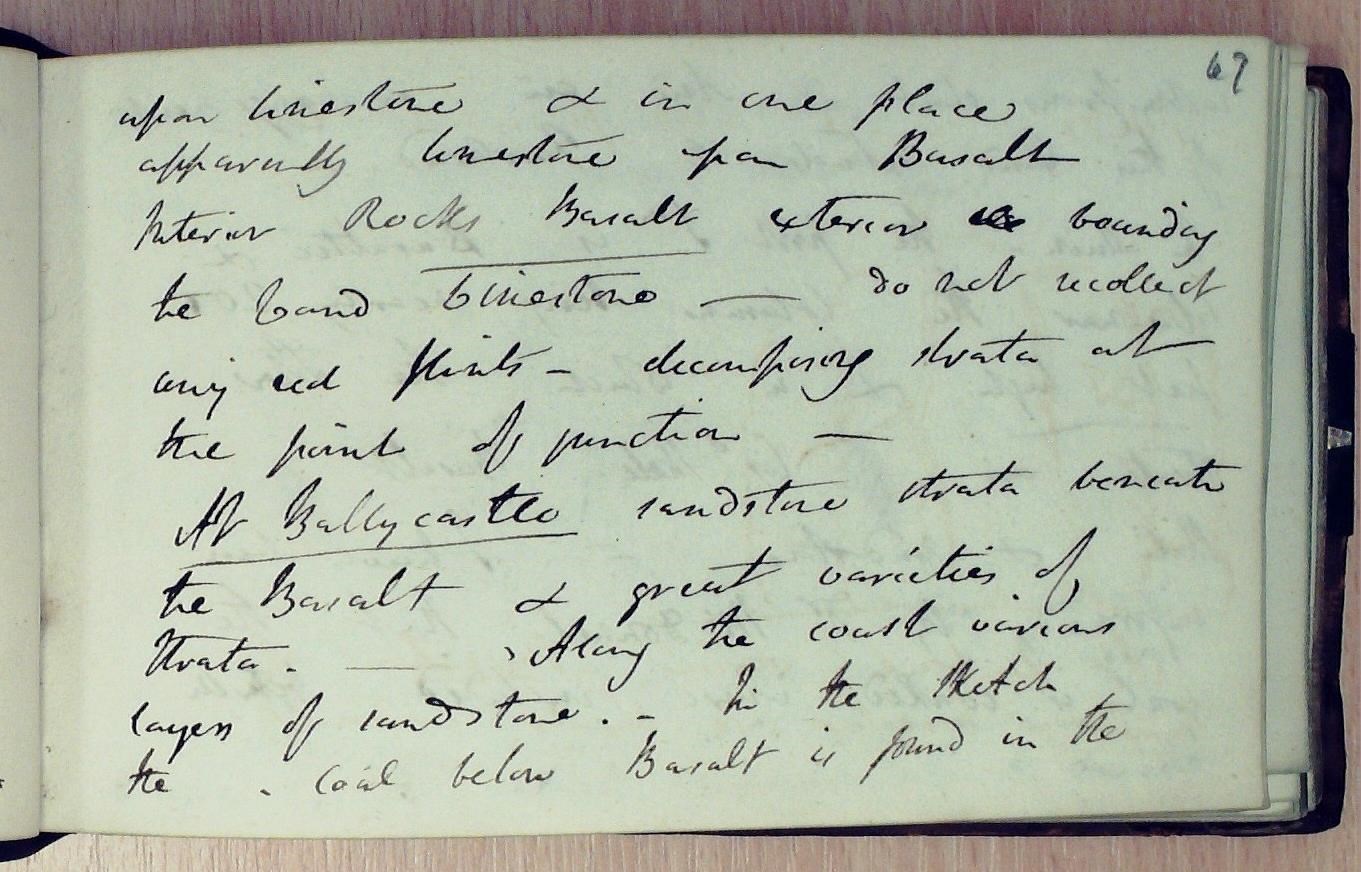 67
upon limestone & in one place
apparently limestone upon Basalt
Interior Rocks Basalt exterior bounding
the land limestone — do not recollect
any red flints - decomposing strata at
the point of junction —
At Ballycastle sandstone strata beneath
the Basalt & great varieties of
strata. — Along the coast various
layers of sandstone. - In the sketch
the . coal below Basalt is found in the